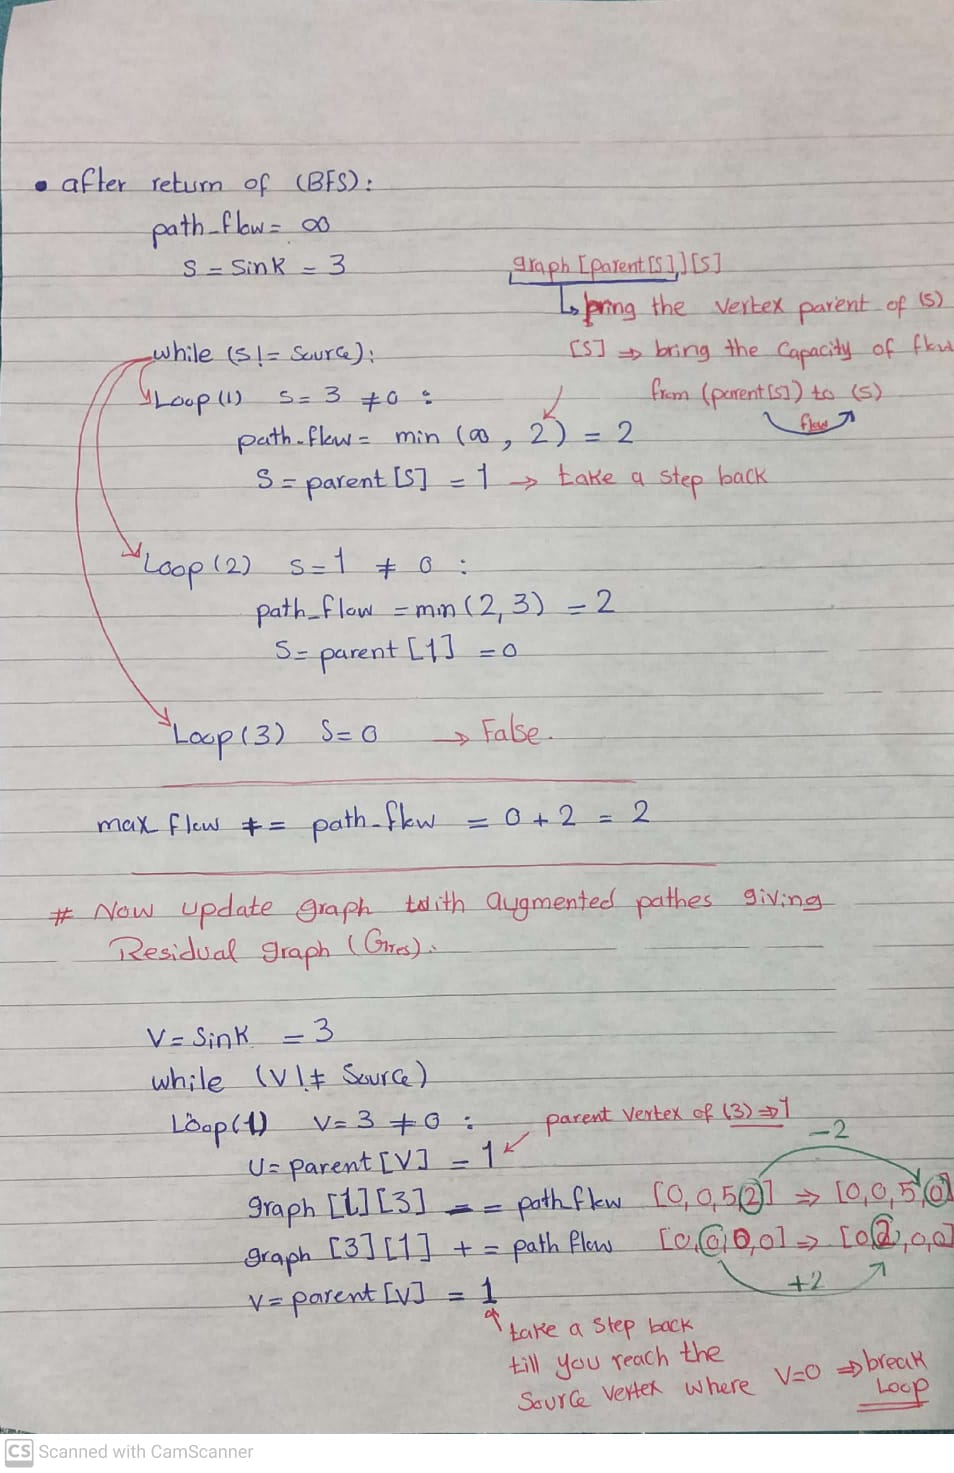 • after return of (BFS):
path_flow = ∞
S = Sink = 3
graph [parent[S]][S]
↳ bring the vertex parent of (S)
[S] ⇒ bring the Capacity of flow
from (parent[S]) to (S)
flow
while (S != Source):
Loop (1) S = 3 ≠ 0 :
path_flow = min (∞, 2) = 2
S = parent [S] = 1 → take a step back
Loop (2) S = 1 ≠ 0 :
path_flow = min (2, 3) = 2
S = parent [1] = 0
Loop (3) S = 0 → False.
max flow += path_flow = 0 + 2 = 2
# Now update graph with augmented pathes giving
Residual graph (Gres).
V = Sink = 3
while (V != Source)
Loop (1) V = 3 ≠ 0 :
parent vertex of (3) ⇒ 1
U = parent [V] = 1
-2
graph [1][3] -= path flow [0, 0, 5, 2] ⇒ [0, 0, 5, 0]
graph [3][1] += path flow [0, 0, 0, 0] ⇒ [0, 2, 0, 0]
+2
V = parent [V] = 1
take a step back
till you reach the
Source vertex where V=0 ⇒ break
Loop
CS Scanned with CamScanner